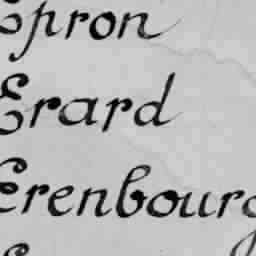 Epron
Erard
Erenbourg